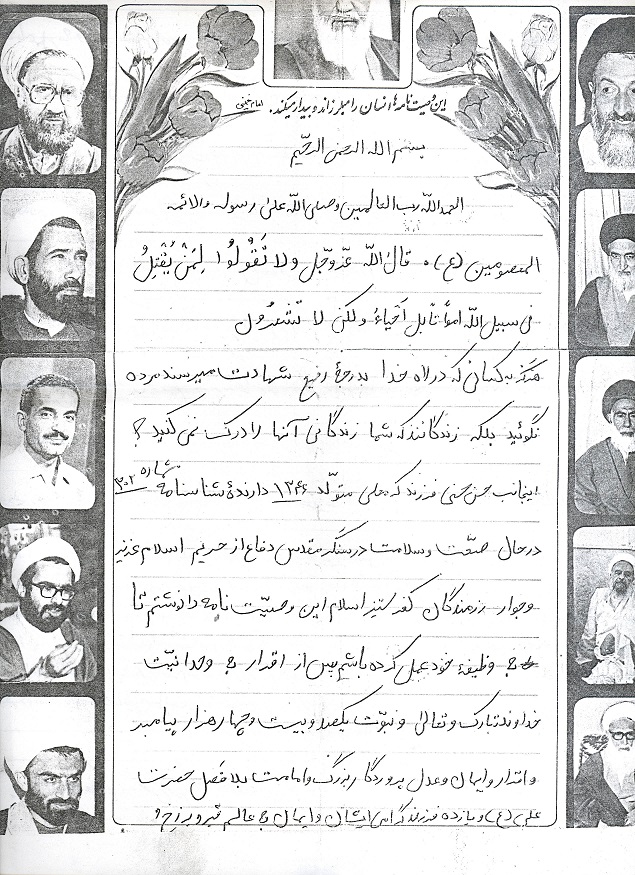 این وصیت نامه‌ها انسان را میلرزاند و بیدار میکند. امام خمینی
بسم الله الرحمن الرحیم
الحمدالله رب العالمین وصلی الله علی رسوله والائمه
المعصومین (ع). قال الله عزّوجل ولا تَقُولُوا لِمَنْ یُقْتَلُ
فی سبیل الله امواتاً بل اَحیاءُ ولکن لا تشعُرُون
هرگز به کسانی که در راه خدا به درجهٔ رفیع شهادت میرسند مرده
نگوئید بلکه زندگانند که شما زندگانی آنها را درک نمی کنید؟
اینجانب حسن حسنی فرزند کرمعلی متولّد ۱۳۴۶ دارندهٔ شناسنامه شماره ۳۰۲
در حال صحّت و سلامت در سنگر مقدس دفاع از حریم اسلام عزیز
و جوار رزمندگان کفر ستیز اسلام این وصیّت نامه را نوشتم تا
به وظیفهٔ خود عمل کرده باشم پس از اقرار به وحدانیّت
خداوند تبارک و تعالی و نبوّت یکصد و بیست و چهار هزار پیامبر
و اقرار و ایمان و عدل پروردگار بزرگ و امامت بلافصل حضرت
علی (ع) و یازده فرزند گرامی ایشان و ایمان به عالم قبر و برزخ و